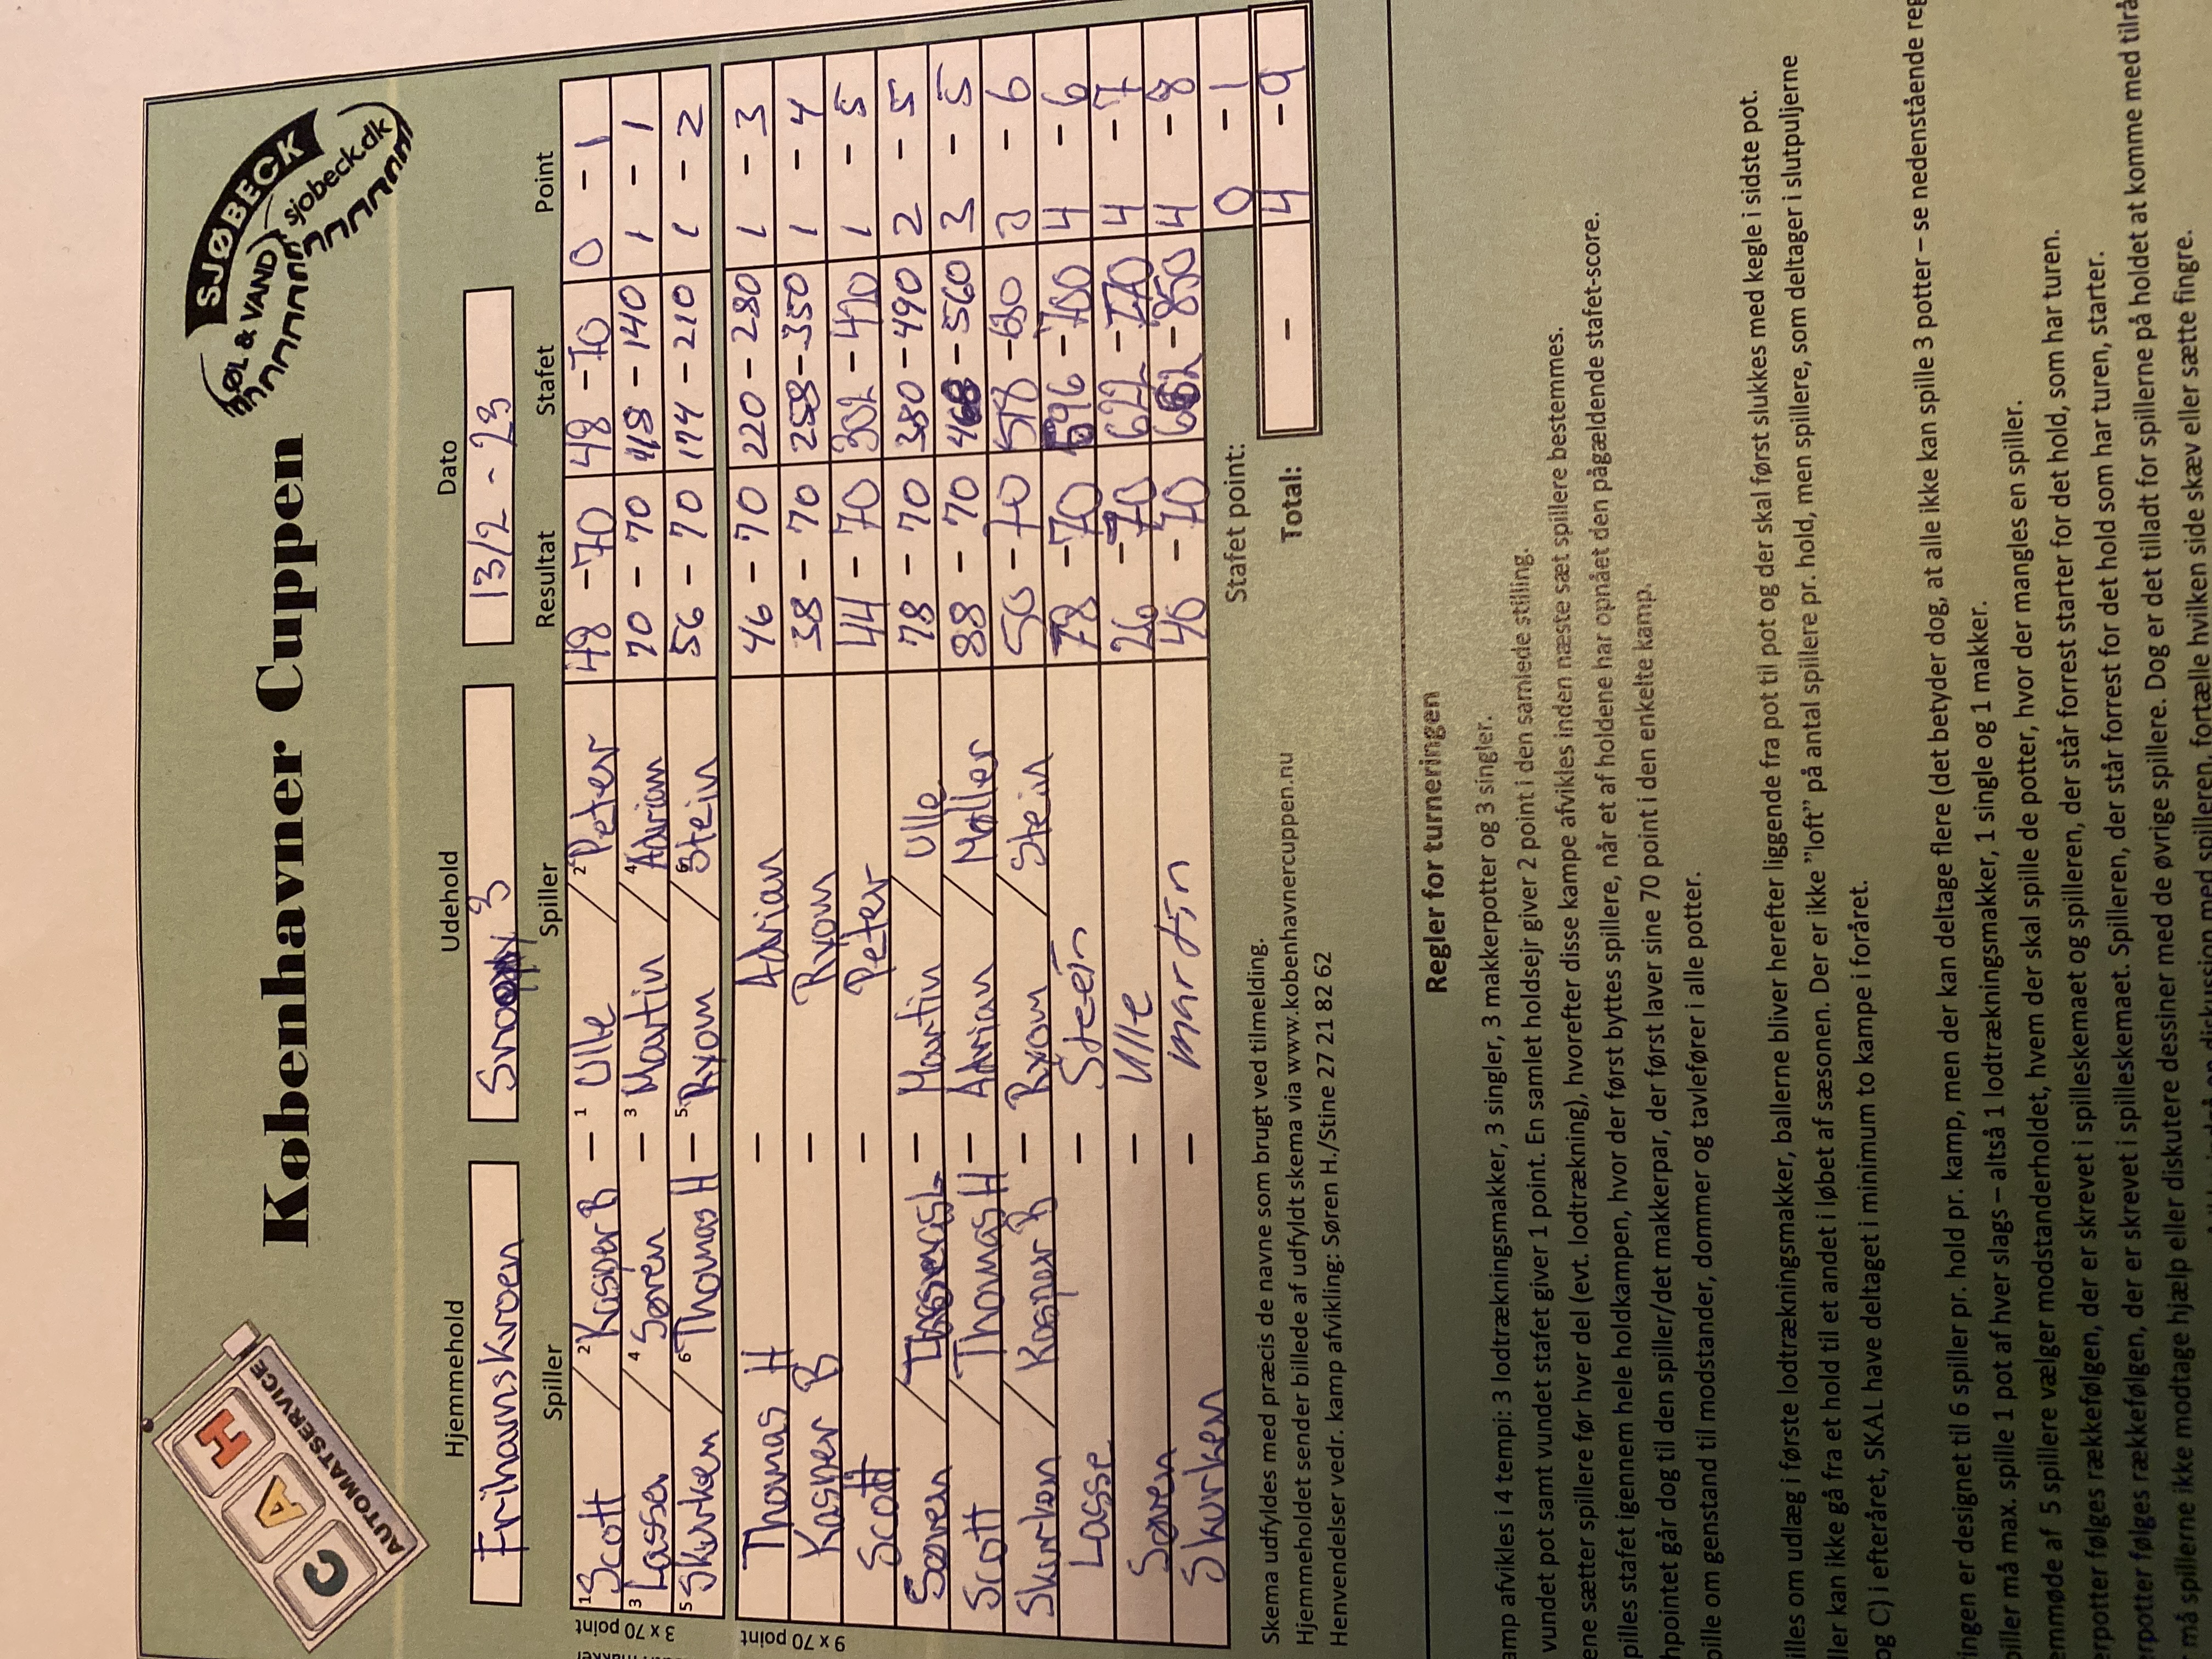 C A H
AUTOMATSERVICE
Københavner Cuppen
SJØBECK
ØL & VAND
sjobeck.dk
Hjemmehold Udehold Dato
Frihavnskroen Snoopy 3 13/2 - 23
Spiller Spiller Resultat Stafet Point
3 x 70 point
1 Scott / 2 Kasper B - 1 Ulle / 2 Peter 48 - 70 48 - 70 0 - 1
3 Lasse / 4 Søren - 3 Martin / 4 Adrian 70 - 70 118 - 140 1 - 1
5 Skurken / 6 Thomas H - 5 Ryom / 6 Stein 56 - 70 174 - 210 1 - 2
9 x 70 point
Thomas H - Adrian 46 - 70 220 - 280 1 - 3
Kasper B - Ryom 38 - 70 258 - 350 1 - 4
Scott - Peter 44 - 70 302 - 420 1 - 5
Søren / - Martin / Ulle 78 - 70 380 - 490 2 - 5
Scott / Thomas H - Adrian / Møller 88 - 70 468 - 560 3 - 5
Skurken / Kasper B - Ryom / Stein 50 - 70 518 - 630 3 - 6
Lasse - Steen 78 - 70 596 - 700 4 - 6
Søren - Ulle 26 - 70 622 - 770 4 - 7
Skurken - martin 40 - 70 662 - 850 4 - 8
Stafet point: 0 - 1
Total: - 4 - 9
Skema udfyldes med præcis de navne som brugt ved tilmelding.
Hjemmeholdet sender billede af udfyldt skema via www.kobenhavnercuppen.nu
Henvendelser vedr. kamp afvikling: Søren H./Stine 27 21 82 62
Regler for turneringen
amp afvikles i 4 tempi: 3 lodtrækningsmakker, 3 singler, 3 makkerpotter og 3 singler.
vundet pot samt vundet stafet giver 1 point. En samlet holdsejr giver 2 point i den samlede stilling.
ene sætter spillere før hver del (evt. lodtrækning), hvorefter disse kampe afvikles inden næste sæt spillere bestemmes.
pilles stafet igennem hele holdkampen, hvor der først byttes spillere, når et af holdene har opnået den pågældende stafet-score.
hpointet går dog til den spiller/det makkerpar, der først laver sine 70 point i den enkelte kamp.
pille om genstand til modstander, dommer og tavlefører i alle potter.
illes om udlæg i første lodtrækningsmakker, ballerne bliver herefter liggende fra pot til pot og der skal først slukkes med kegle i sidste pot.
ller kan ikke gå fra et hold til et andet i løbet af sæsonen. Der er ikke "loft" på antal spillere pr. hold, men spillere, som deltager i slutpuljerne
og C) i efteråret, SKAL have deltaget i minimum to kampe i foråret.
ingen er designet til 6 spiller pr. hold pr. kamp, men der kan deltage flere (det betyder dog, at alle ikke kan spille 3 potter – se nedenstående reg
piller må max. spille 1 pot af hver slags – altså 1 lodtrækningsmakker, 1 single og 1 makker.
emmøde af 5 spillere vælger modstanderholdet, hvem der skal spille de potter, hvor der mangles en spiller.
erpotter følges rækkefølgen, der er skrevet i spilleskemaet og spilleren, der står forrest starter for det hold, som har turen.
erpotter følges rækkefølgen, der er skrevet i spilleskemaet. Spilleren, der står forrest for det hold som har turen, starter.
må spillerne ikke modtage hjælp eller diskutere dessiner med de øvrige spillere. Dog er det tilladt for spillerne på holdet at komme med tilrå
diskussion med spilleren, fortælle hvilken side skæv eller sætte fingre.